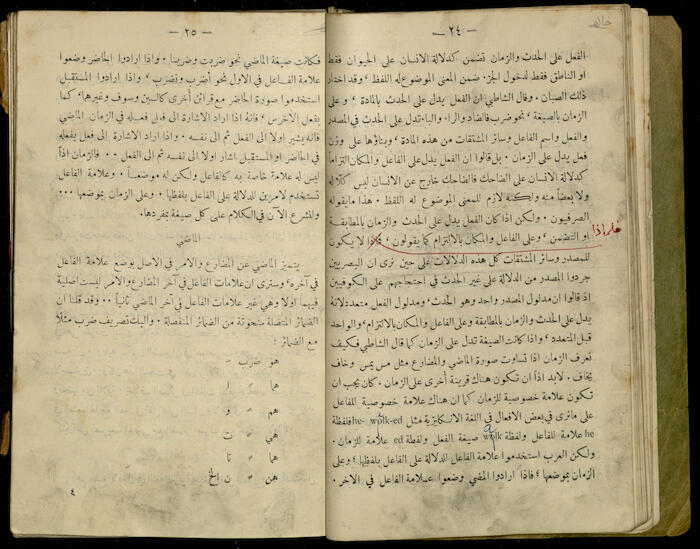 خالد
— ٢٤ —
الفعل على الحدث والزمان تضمن كدلالة الانسان على الحيوان فقط
او الناطق فقط لدخول الجزء ضمن المعنى الموضوع له اللفظ ، وقد اختار
ذلك الصبان . وقال الشاطبي ان الفعل يدل على الحدث بالمادة ، وعلى
الزمان بالصيغة ، نحو ضرب فالضاد والراء والباء تدل على الحدث في المصدر
والفعل واسم الفاعل وسائر المشتقات من هذه المادة ، وبناؤها على وزن
فعل يدل على الزمان . بل قالوا ان الفعل يدل على الفاعل والمكان التزاماً
كدلالة الانسان على الضاحك فالضاحك خارج عن الانسان ليس كلاله
ولا بعضاً منه ولكنه لازم للمعنى الموضوع له اللفظ . هذا ما يقوله
الصرفيون . ولكن اذا كان الفعل يدل على الحدث والزمان بالمطابقة
او التضمن ، وعلى الفاعل والمكان بالالتزام كما يقولون ، فلماذا لا يكون
للمصدر وسائر المشتقات كل هذه الدلالات على حين نرى ان البصريين
جردوا المصدر من الدلالة على غير الحدث في احتجاجهم على الكوفيين
اذ قالوا ان مدلول المصدر واحد وهو الحدث ، ومدلول الفعل متعدد لانه
يدل على الحدث والزمان بالمطابقة وعلى الفاعل والمكان بالالتزام ، والواحد
قبل المتعدد ، واذا كانت الصيغة تدل على الزمان كما قال الشاطبي فكيف
تعرف الزمان اذا تساوت صورة الماضي والمضارع مثل مس يمس وخاف
يخاف . لابد اذاً ان تكون هناك قرينة أخرى على الزمان . كان يجب ان
تكون علامة خصوصية للزمان كما ان هناك علامة خصوصية للفاعل
على ما نرى في بعض الافعال في اللغة الانكليزية مثل he walk-ed فلفظة
he علامة للفاعل ولفظة walk صيغة الفعل ولفظة ed علامة للزمان .
ولكن العرب استخدموا علامة الفاعل للدلالة على الفاعل بلفظها ، وعلى
الزمان بموضعها ، فاذا ارادوا المضي وضعوا علامة الفاعل في الاخر .
— ٢٥ —
فكانت صيغة الماضي نحو ضربت وضربنا . واذا ارادوا الحاضر وضعوا
علامة الفاعل في الاول نحو أضرب ونضرب ، واذا ارادوا المستقبل
استخدموا صورة الحاضر مع قرائن أخرى كالسين وسوف وغيرها . كما
يفعل الأخرس ، فانه اذا اراد الاشارة الى فعل فعله في الزمان الماضي
فانه يشير اولا الى الفعل ثم الى نفسه . واذا اراد الاشارة الى فعل يفعله
في الحاضر او المستقبل اشار اولا الى نفسه ثم الى الفعل . . فالزمان اذاً
ليس له علامة خاصة به كالفاعل ولكن له موضعاً . وعلامة الفاعل
تستخدم لامرين للدلالة على الفاعل بلفظها . وعلى الزمان بموضعها . . .
ولنشرع الآن في الكلام على كل صيغة بمفردها .
الماضي
يتميز الماضي عن المضارع والامر في الاصل بوضع علامة الفاعل
في آخره ، وسترى ان علامات الفاعل في آخر المضارع والامر ليست اصلية
فيهما اولا وهي غير علامات الفاعل في آخر الماضي ثانياً . . وقد قلنا ان
الضمائر المتصلة منحوتة من الضمائر المنفصلة . واليك تصريف ضرب مثلا
مع الضمائر :
هو ضرب -
هما " ا
هم " و
هي " ت
هما " تا
هن " ن الخ
٤